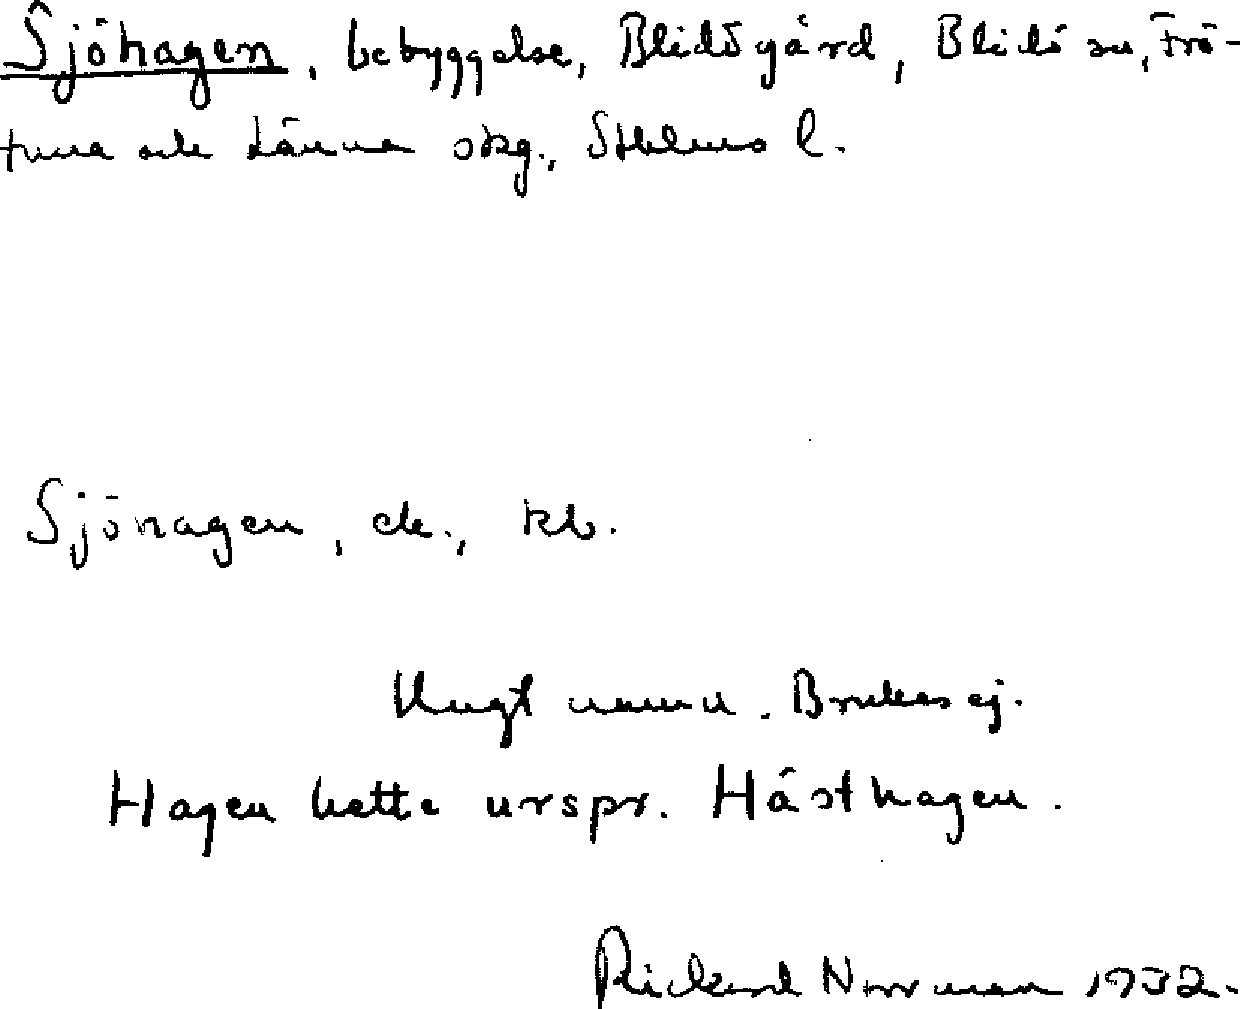 Sjöhagen, bebyggelse, Blidö gård, Blidö sn, Frö-
tuna och Länna skg., Sthlms l.
Sjöhagen, ek., kb.
Ungt namn. Brukas ej.
Hagen hette urspr. Hästhagen.
Rickard Norrman 1932.